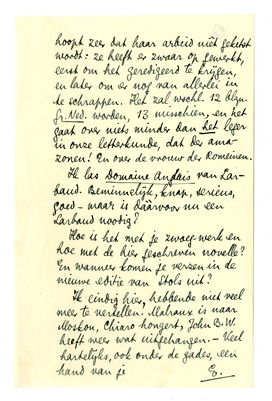 hoopt zeer dat haar arbeid niet geketst
wordt: ze heeft er zwaar op gewerkt,
eerst om het geredigeerd te krijgen,
en later om er nog van allerlei in
te schrappen. Het zal wschl. 12 blzn.
Gr. Ned. worden, 13 misschien, en het
gaat over niets minder dan het leger
in onze letterkunde, dat der ama-
zonen! En over de vrouw der Romeinen.
Ik las Domaine Anglais van Lar-
baud. Beminnelijk, knap, serieus,
goed – maar is dáárvoor nu een
Larbaud noodig?
Hoe is het met je zwoegwerk en
hoe met de hier geschreven novelle?
En wanneer komen je verzen in de
nieuwe editie van Stols uit?
Ik eindig hier, hebbende niet veel
meer te vertellen. Malraux is naar
Moskou, Chiaro hongert, John B.W.
heeft meer wat uitgehangen. – Veel
hartelijks, ook onder de gades, een
hand van je
E.